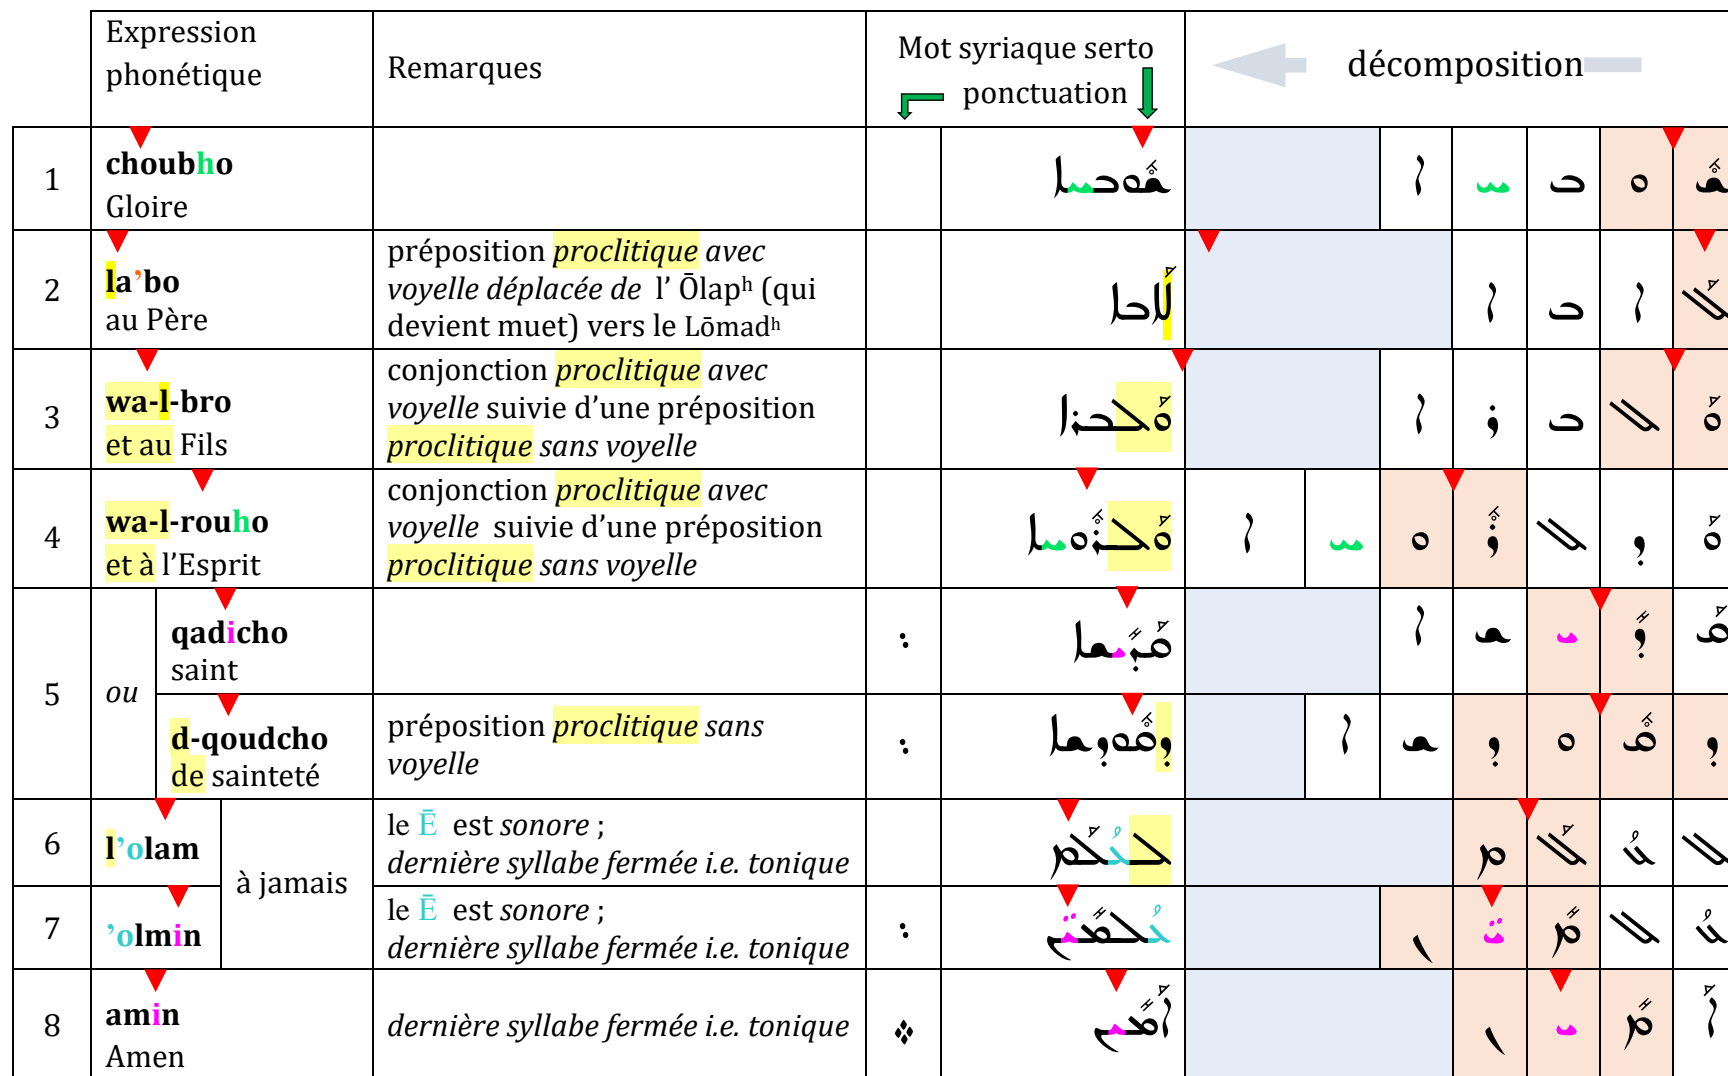 Expression
phonétique
Remarques
Mot syriaque serto
ponctuation
décomposition
1
choubho
Gloire
ܫܽܘܒܚܐ
ܐ ܚ ܒ ܘ ܫܽ
2
la’bo
au Père
préposition proclitique avec
voyelle déplacée de l’ Ōlapʰ (qui
devient muet) vers le Lōmadʰ
ܠܰܐܒܐ
ܐ ܒ ܐ ܠܰ
3
wa-l-bro
et au Fils
conjonction proclitique avec
voyelle suivie d’une préposition
proclitique sans voyelle
ܘܰܠܒܪܐ
ܐ ܪ ܒ ܠ ܘܰ
4
wa-l-rouho
et à l’Esprit
conjonction proclitique avec
voyelle suivie d’une préposition
proclitique sans voyelle
ܘܰܠܪܽܘܚܐ
5
ou
qadicho
saint
:
ܩܰܕܺܝܫܐ
ܐ ܫ ܝ ܕܺ ܩܰ
d-qoudcho
de sainteté
préposition proclitique sans
voyelle
:
ܕܩܽܘܕܫܐ
ܐ ܫ ܕ ܘ ܩܽ ܕ
6
l’olam
à jamais
le Ē est sonore ;
dernière syllabe fermée i.e. tonique
ܠܥܳܠܰܡ
ܡ ܠܰ ܥܳ ܠ
7
’olmin
le Ē est sonore ;
dernière syllabe fermée i.e. tonique
:
ܥܳܠܡܺܝ̈ܢ
ܢ ܝ̈ ܡܺ ܠ ܥܳ
8
amin
Amen
dernière syllabe fermée i.e. tonique
܀
ܐܰܡܺܝܢ
ܢ ܝ ܡܺ ܐܰ